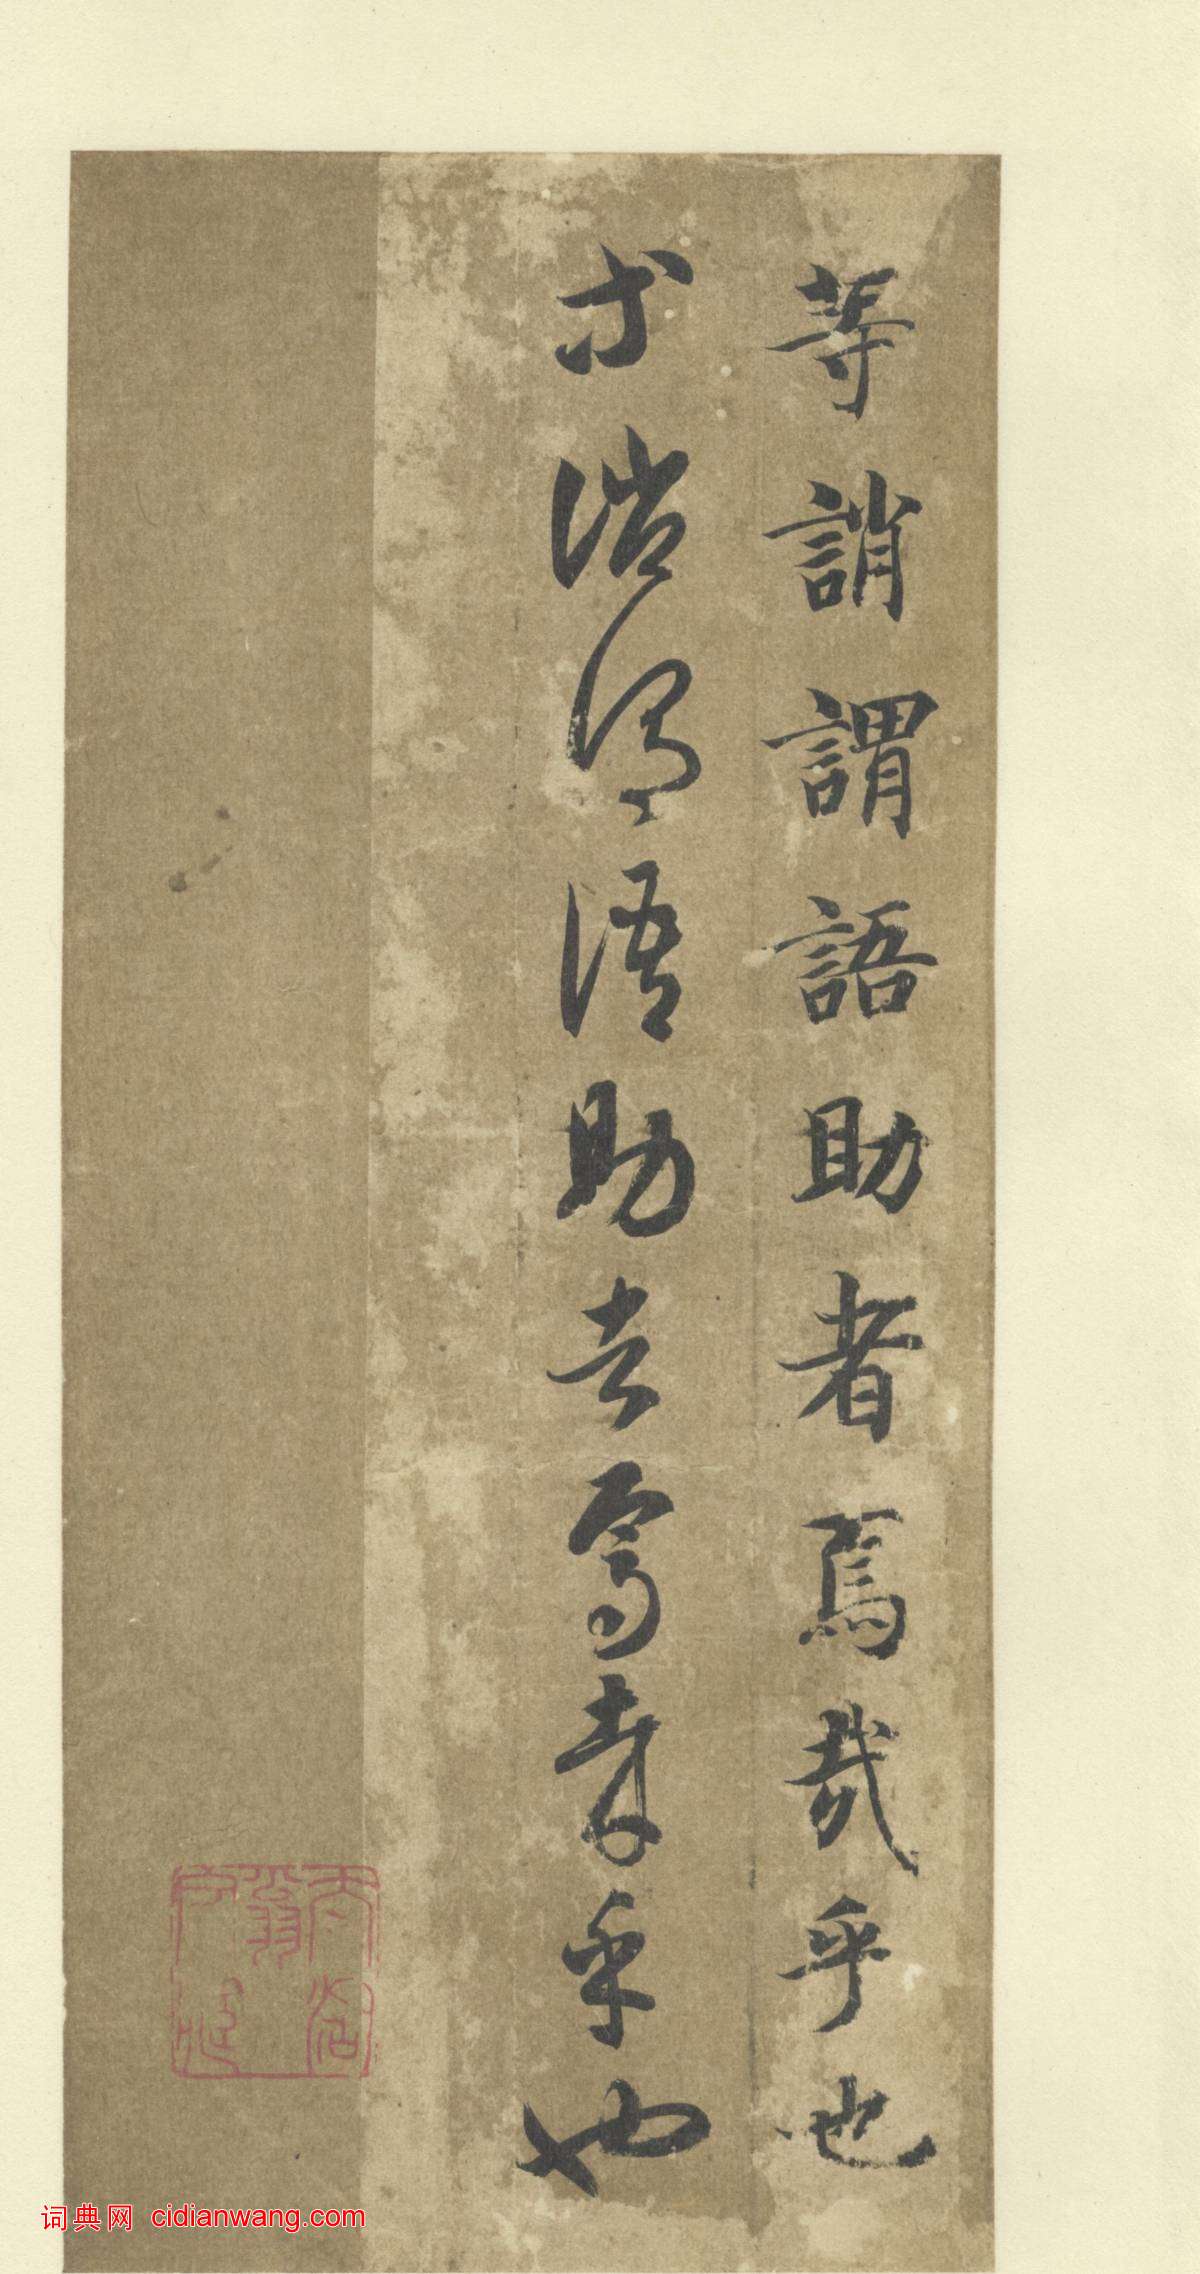 等誚謂語助者焉哉乎也
等誚謂語助者焉哉乎也
词典网 cidianwang.com